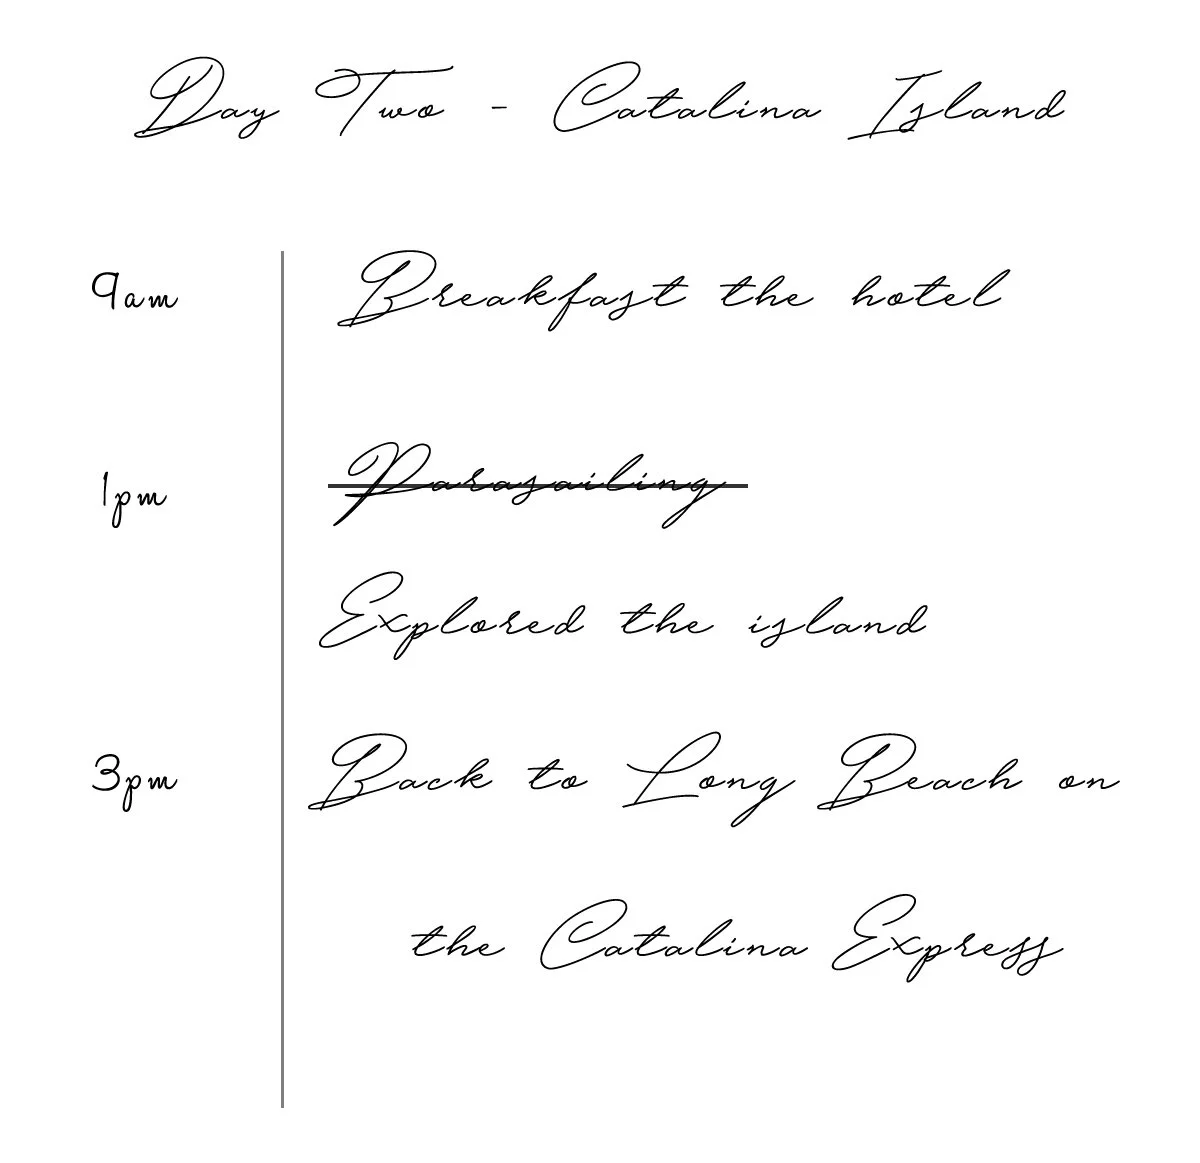 Day Two - Catalina Island
9am Breakfast the hotel
1pm Parasailing
Explored the island
3pm Back to Long Beach on
the Catalina Express